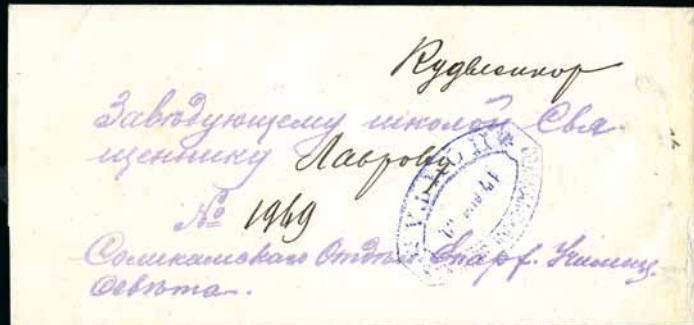 Кудымкор
Завѣдующему школой Свя-
щеннику Лаврову
№ 1969
Соликамскаго Отдѣл. Епарх. Училищ.
Совѣта.